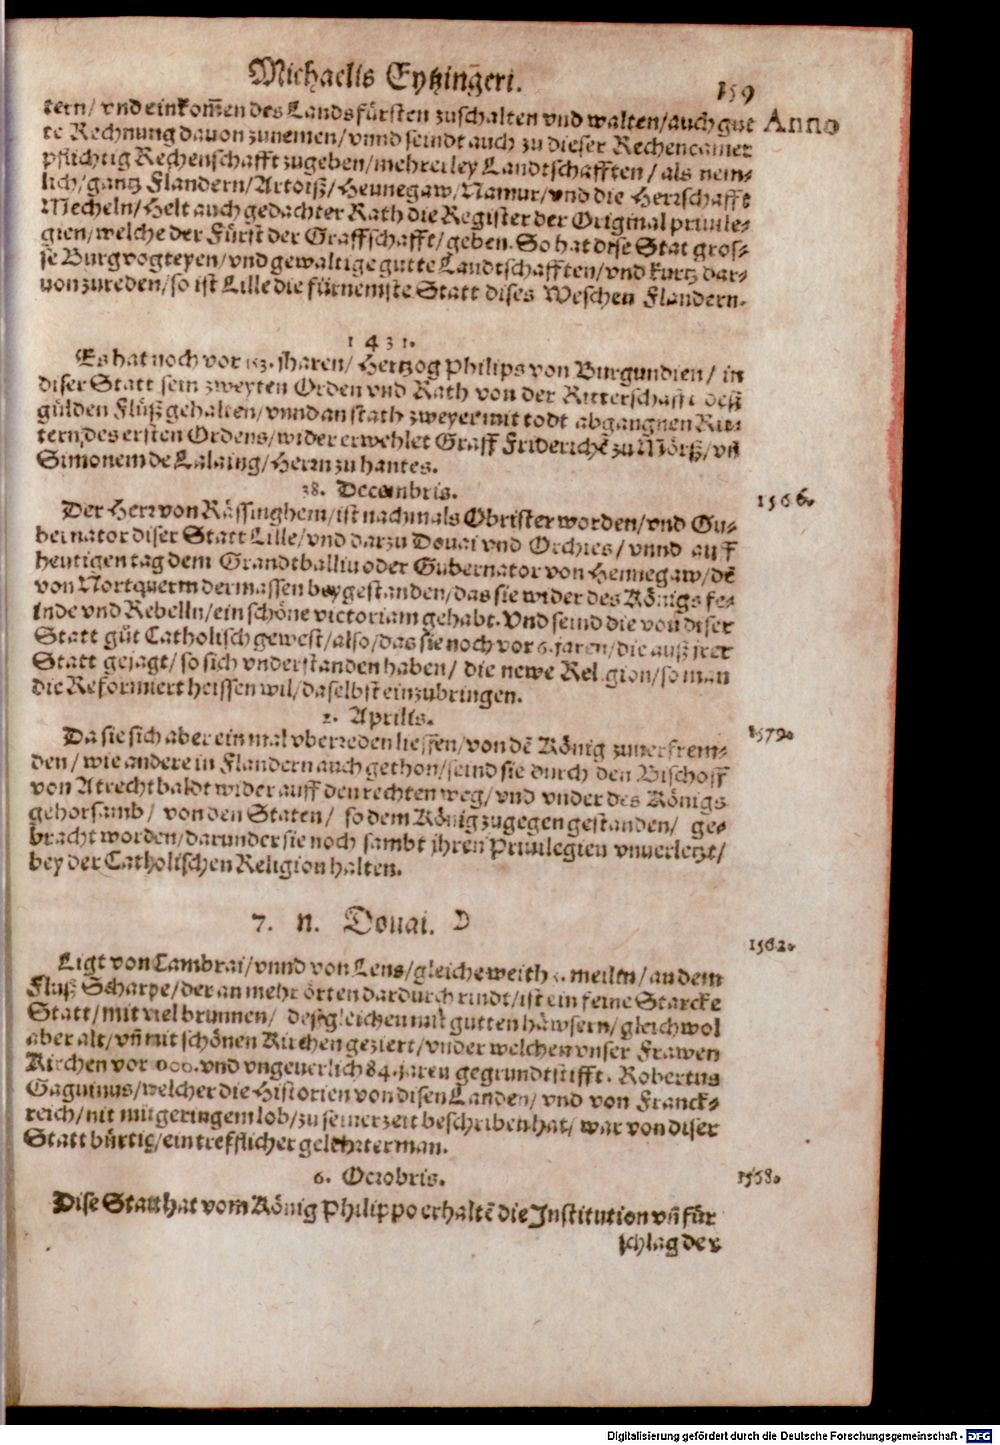 Michaelis Eytzingeri.
159
tern/ vnd einkom̄en des Landsfürsten zuschalten vnd walten/auch gut
Anno
te Rechnung dauon zunemen/vnnd seindt auch zu dieser Rechencamer
pflichtig Rechenschafft zugeben/mehrerley Landtschafften/ als nem-
lich/gantz Flandern/Artoiß/Hennegaw/Namur/vnd die Herrschafft
Mecheln/Helt auch gedachter Rath die Register der Original priuile-
gien/welche der Fürst der Graffschafft/geben. So hat dise Stat gros-
se Burgvogteyen/vnd gewaltige gutte Landtschafften/vnd kurtz dar-
uonzureden/so ist Lille die fürnemste Statt dises Weschen Flandern.
1431.
Es hat noch vor jharen/ Hertzog Philips von Burgundien/ in
diser Statt sein zweyten Orden vnd Rath von der Ritterschafft deß
gülden Flüß gehalten/vnnd an stath zweyer mit todt abgangnen Rit-
tern/des ersten Ordens/wider erwehlet Graff Friderichē zu Mörß/vn̄
Simonem de Lalaing/Herrn zu hantes.
28. Decembris.
1566.
Der Herr von Rässinghem/ist nachmals Obrister worden/vnd Gu-
bernator diser Statt Lille/vnd darzu Douai vnd Orchies/ vnnd auff
heutigen tag dem Grandtballiu oder Gubernator von Hennegaw/dē
von Nortquerm dermassen beygestanden/das sie wider des Königs fe-
inde vnd Rebelln/ein schöne victoriam gehabt. Vnd seind die von diser
Statt gůt Catholisch gewest/also/das sie noch vor 6. jaren/die auß jrer
Statt gejagt/so sich vnderstanden haben/ die newe Religion/so man
die Reformiert heissen wil/daselbst einzubringen.
2. Aprilis.
1579.
Da sie sich aber ein mal vberreden liessen/von dē König zuuerfrem-
den/wie andere in Flandern auch gethon/seind sie durch den Bischoff
von Atrecht baldt wider auff den rechten weg/vnd vnder des Königs
gehorsamb/ von den Staten/ so dem König zugegen gestanden/ ge-
bracht worden/darunder sie noch sambt jhren Priuilegien vnuerletzt/
bey der Catholischen Religion halten.
7. n. Douai. D
1562.
Ligt von Cambrai/vnnd von Lens/gleiche weith meiln/an dem
Fluß Scharpe/der an mehr örten dardurch rindt/ist ein feine Starcke
Statt/mit viel brunnen/ deßgleichen mit gutten häwsern/gleichwol
aber alt/vn̄ mit schönen Kirchen geziert/vnder welchen vnser Frawen
Kirchen vor vnd vngeuerlich 84. jaren gegrundtstifft. Robertus
Gaguinus/welcher die Historien von disen Landen/ vnd von Franck-
reich/nit mit geringem lob/zu seiner zeit beschriben hat/ war von diser
Statt bürtig/ein trefflicher gelehrter man.
6. Octobris.
1568.
Dise Statt hat vom König Philippo erhaltē die Institution vn̄ für
schlag der
Digitalisierung gefördert durch die Deutsche Forschungsgemeinschaft - DFG